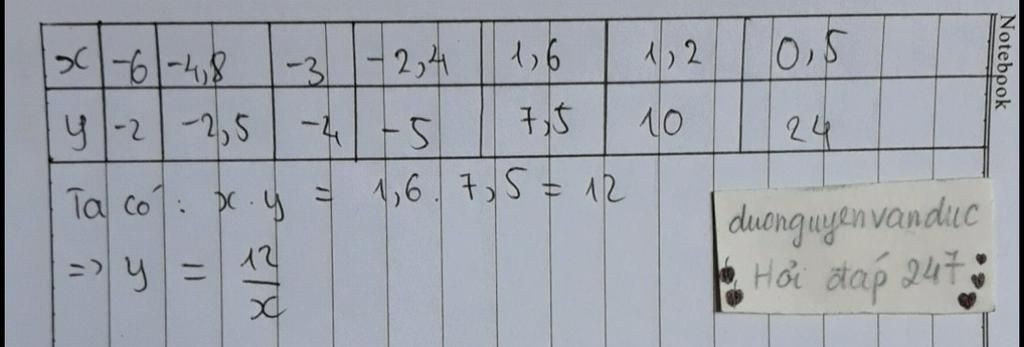 x -6 -4,8 -3 -2,4 1,6 1,2 0,5
y -2 -2,5 -4 -5 7,5 10 24
Ta có: x.y = 1,6. 7,5 = 12
=> y = 12/x
duonguyenvanduc
Hỏi đáp 247
Notebook